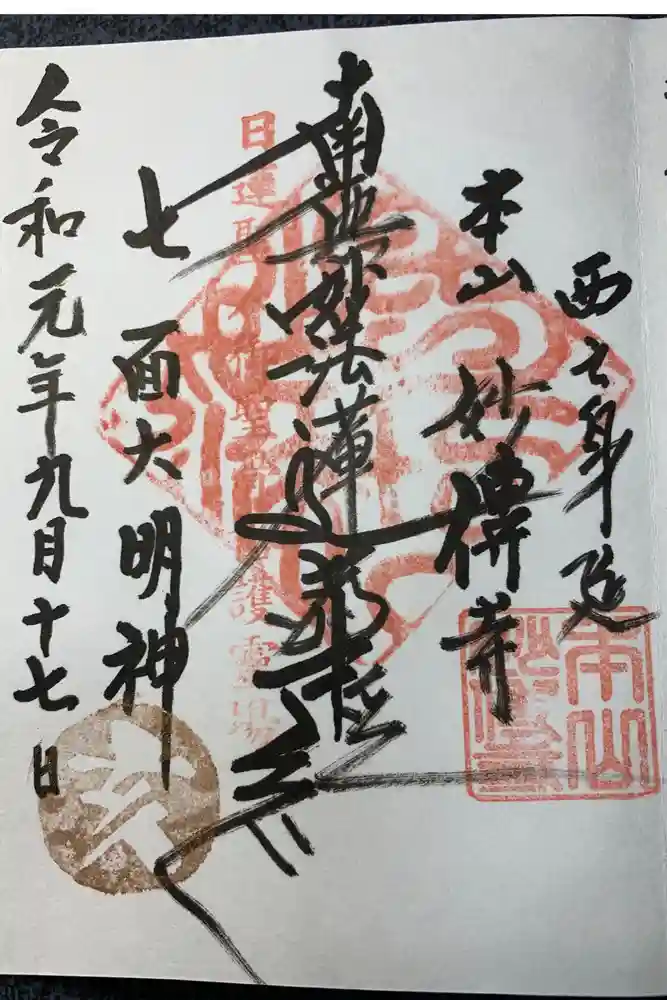 西之身延
本山 妙傳寺
南無妙法蓮華経
日蓮聖
護霊場
七面大明神
令和元年九月十七日
本山